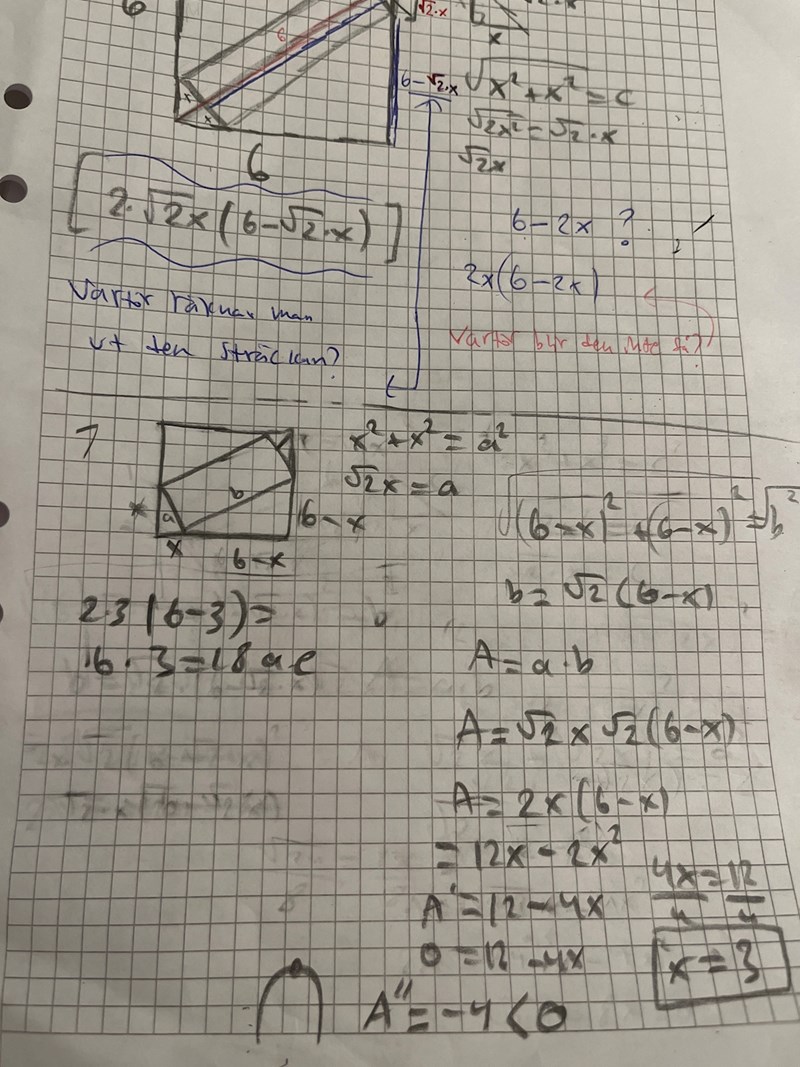 6
√2·x
b
x
6-√2·x
√x²+x² = c
√2x² = √2·x
√2x
6
[2·√2x(6-√2·x)]
6-2x ?
2x(6-2x)
Varför räknar man
ut den sträckan?
Varför blir den inte så?
7
x²+x² = a²
√2x = a
x
a
b
6-x
x
6-x
√(6-x)²+(6-x)² = √b²
b = √2(6-x)
2·3(6-3)=
6·3=18 ae
A = a·b
A = √2 x √2(6-x)
A = 2x(6-x)
= 12x-2x²
A' = 12-4x
4x = 12
4 4
0 = 12-4x
x = 3
A'' = -4 < 0